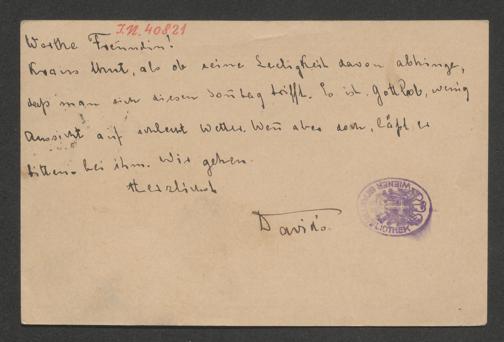 I.N. 40821
Werthe Freundin!
Kraus thut, als ob seine Seligkeit davon abhinge,
daß man sich diesen Sonntag trifft. Es ist, Gottlob, wenig
Aussicht auf schlecht Wetter. Wenn aber doch, läßt er
bitten bei ihm. Wir gehen.
Herzlichst
Davids.
WIENER
BIBLIOTHEK